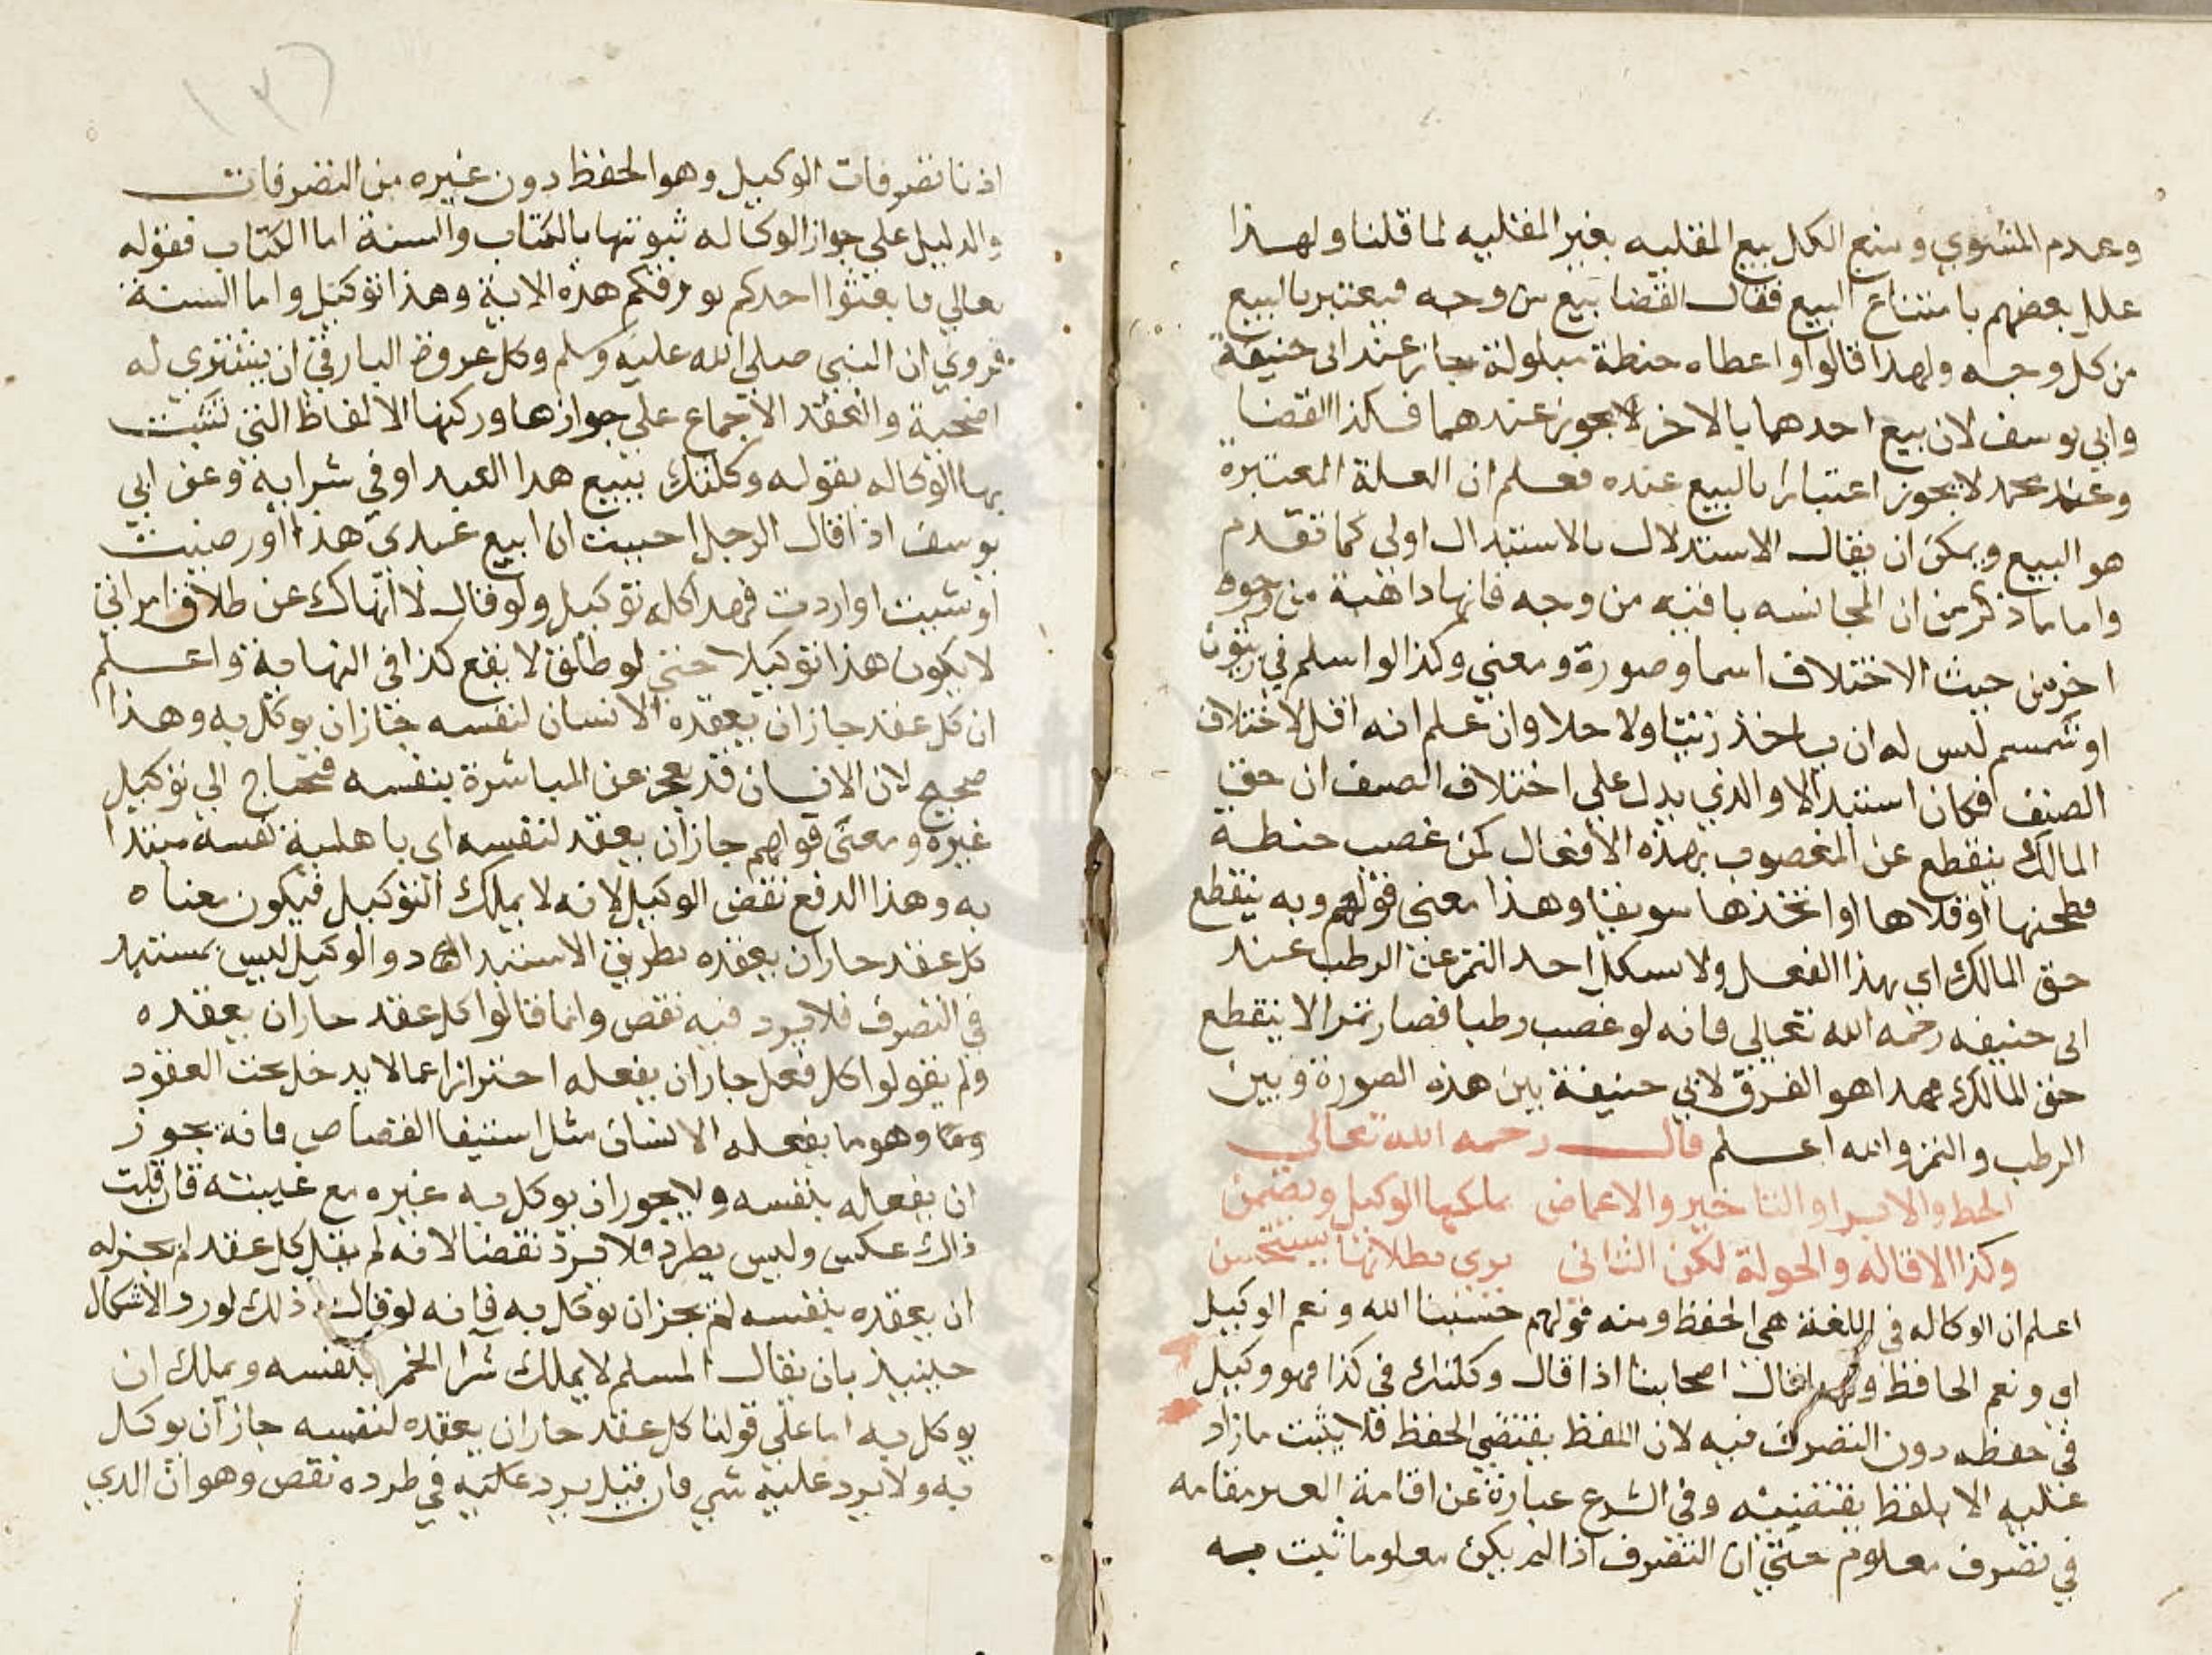 وعدم المشوي ومنع الكل بيع المقليه بغير المقليه لما قلنا ولهذا
علل بعضهم بامتناع البيع فقال القضا بيع من وجه فيعتبر بالبيع
من كل وجه ولهذا قالوا واعطاه حنطة مبلولة جاز عند ابى حنيفة
وابي يوسف لان بيع احدهما بالاخر لا يجوز عندهما فكذا القضا
وعند محمد لا يجوز اعتبارا بالبيع عنده فعلم ان العلة المعتبرة
هو البيع ويمكن ان يقال الاستدلال بالاستبدال اولي كما تقدم
واما ما ذكر من ان المجانسه باقيه من وجه فانها ذاهبة من وجوه
اخر من حيث الاختلاف اسما وصورة ومعني وكذا لو اسلم في زيتون
او سمسم ليس له ان ياخذ زيتا ولا حلا وان علم انه اقل لاختلاف
الصنف فكان استبدالا والذي يدل علي اختلاف الصنف ان حق
المالك ينقطع عن المغصوب بهذه الافعال كمن غصب حنطة
فطحنها او قلاها او اتخذها سويقا وهذا معني قولهم وبه ينقطع
حق المالك اي بهذا الفعل ولا يشكل احد التمر عن الرطب عند
ابى حنيفه رحمه الله تعالي فانه لو غصب رطبا فصار تمرا لا ينقطع
حق المالك فهذا هو الفرق لابي حنيفة بين هذه الصورة وبين
الرطب والتمر والله اعلم قال رحمه الله تعالي
الحط والابرا والتاخير والاعماض يملكها الوكيل ويضمن
وكذا الاقاله والحولة لكن الثاني يري بطلانها يستحسن
اعلم ان الوكاله في اللغة هي الحفظ ومنه قولهم حسبنا الله ونعم الوكيل
اي ونعم الحافظ ولهذا قال اصحابنا اذا قال وكلتك في كذا فهو وكيل
في حفظه دون التصرف فيه لان اللفظ يقتضي الحفظ فلا يثبت ما زاد
عليه الا بلفظ يقتضيه وفي الشرع عبارة عن اقامة الغير مقامه
في تصرف معلوم حتي ان التصرف اذا لم يكن معلوما ثبت به
اذنا تصرفات الوكيل وهو الحفظ دون غيره من التصرفات
والدليل علي جواز الوكاله ثبوتها بالكتاب والسنة اما الكتاب فقوله
تعالي فابعثوا احدكم بورقكم هذه الاية وهذا توكيل واما السنة
فروي ان النبي صلي الله عليه وسلم وكل عروض البارقي ان يشتري له
اضحية وانعقد الاجماع علي جوازها وركنها الالفاظ التي تثبت
بها الوكاله بقوله وكلتك ببيع هذا العبد او في شرايه وعن ابي
يوسف اذا قال الرجل احببت ان ابيع عبدي هذا او رضيت
او شيت او اردت فهذا كله توكيل ولو قال لا انهاك عن طلاق امراتي
لا يكون هذا توكيلا حتي لو طلق لا يقع كذا في النهاية واعلم
ان كل عقد جاز ان يعقده الانسان لنفسه جاز ان يوكل به وهذا
صحيح لان الانسان قد يعجز عن المباشرة بنفسه فيحتاج الي توكيل
غيره ومعنى قولهم جاز ان يعقد لنفسه اي باهلية نفسه مبتدا
به وهذا الدفع نقض الوكيل لانه لا يملك التوكيل فيكون معناه
كل عقد جاز ان يعقده بطريق الاستبداد والوكيل ليس بمستبد
في التصرف فلا يرد فيه نقص وانما قالوا كل عقد جاز ان يعقده
ولم يقولوا كل فعل جاز ان يفعله احترازا عما لا يدخل تحت العقود
وهو ما يفعله الانسان مثل استيفا القصاص فانه يجوز
ان يفعله بنفسه ولا يجوز ان يوكل به غيره مع غيبته فان قلت
ذاك عكس وليس يطرد فلا يرد نقضا لانه لم يقل كل عقد لم يجز له
ان يعقده بنفسه لم يجز ان يوكل به فانه لو قال ذلك لورد الاشكال
حينيذ بان يقال المسلم لا يملك شرا الخمر بنفسه ويملك ان
يوكل به اما علي قولنا كل عقد جاز ان يعقده لنفسه جاز ان يوكل
به ولا يرد عليه شي فان قيل يرد عليه في طرده نقص وهو ان الذي